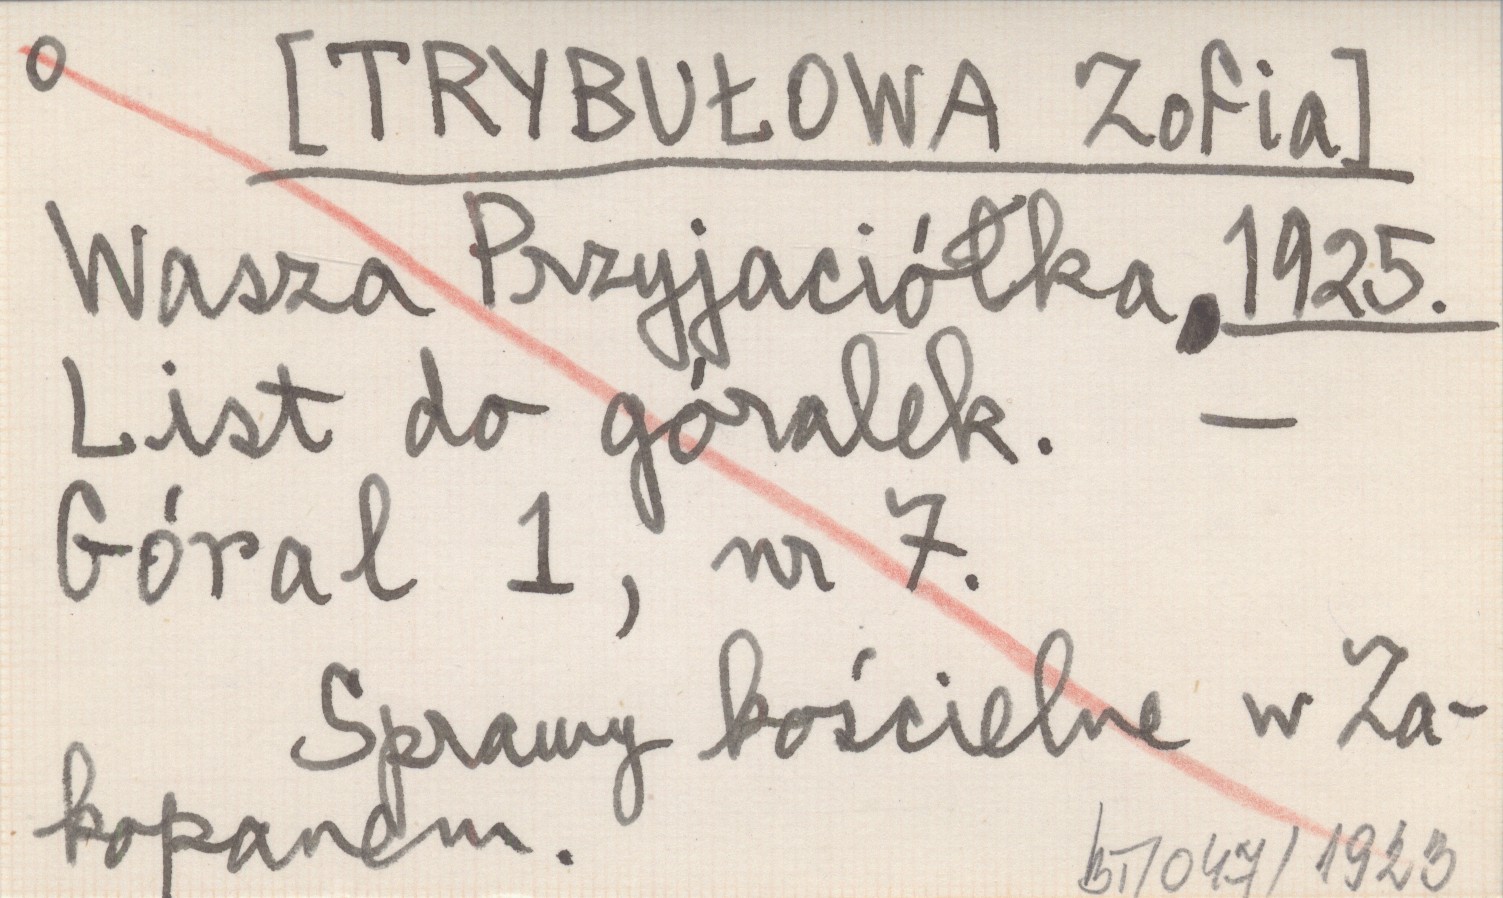 o [TRYBUŁOWA Zofia]
Wasza Przyjaciółka, 1925.
List do góralek. —
Góral 1, nr 7.
Sprawy kościelne w Za-
kopanem.
BT/047/1923